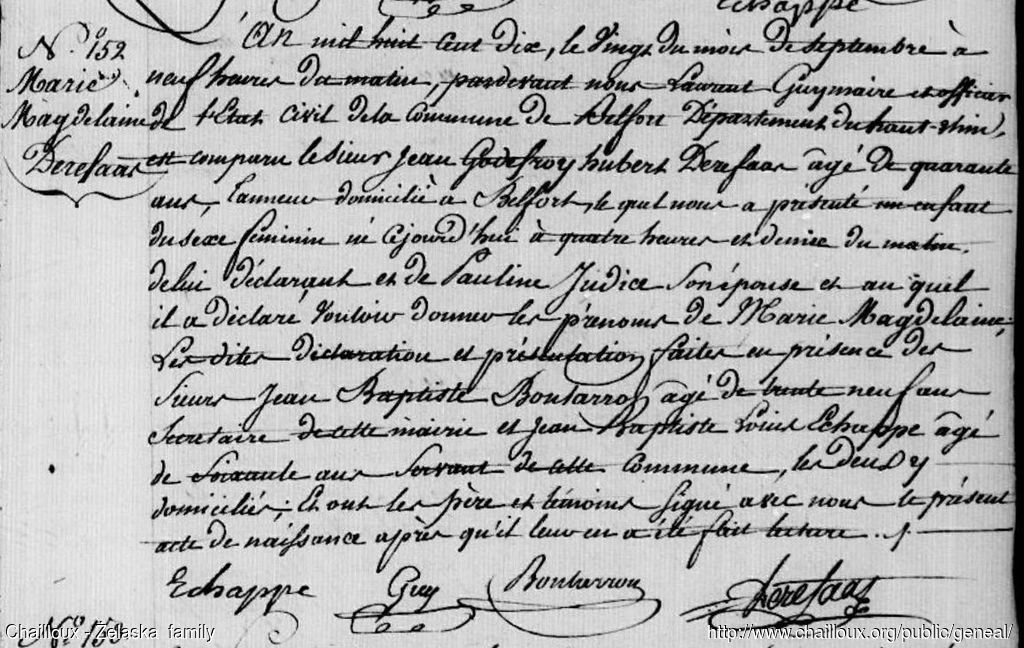 Echappe
N.º 152
Marie
Magdelaine
Derefaas
L'An mil huit cent dix, le vingt du mois de septembre à
neuf heures du matin, pardevant nous Laurent Guy maire et officier
de l'Etat civil de la Commune de Belfort Département du haut-rhin,
est comparu le Sieur Jean Godefroy hubert Derefaas âgé de quarante
ans, Tanneur domicilié à Belfort, lequel nous a présenté un enfant
du sexe féminin né cejourd'hui à quatre heures et demie du matin.
de lui déclarant et de Pauline Judice son épouse et au quel
il a déclaré vouloir donner les prénoms de Marie Magdelaine.
Les dites déclaration et présentation faites en présence des
Sieurs Jean Baptiste Bontarron âgé de trente neuf ans
Secretaire de cette mairie et Jean Baptiste Louis Echappe âgé
de Soixante ans Servant de cette Commune, les deux y
domiciliés; Et ont les père et témoins signé avec nous le présent
acte de naissance après qu'il leur en a été fait lecture ./.
Echappe Guy Derefaas
Nº 153
Chailloux - Zelaska family
http://www.chailloux.org/public/geneal/